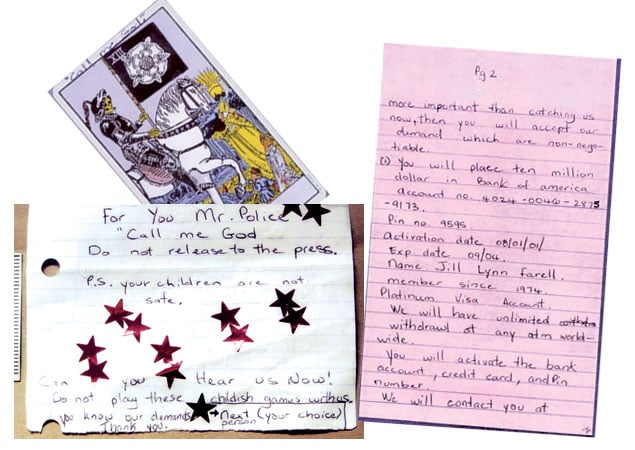 "Call me God"
XIII
For You Mr. Police
"Call me God
Do not release to the press.
P.S. your children are not
safe.
Can you Hear us Now!
Do not play these childish games withus
you know our demands → Next (your choice)
person
Thank you.
Pg 2
more important than catching us
now, then you will accept our
demand which are non-nego-
tiable.
(1) You will place ten million
dollar in Bank of america
account no. 4024-0046-2875
-9173.
Pin no. 9595.
Activation date 08/01/01/
Exp date 09/04.
Name: Jill Lynn Farell.
member since 1974.
Platinum Visa Account.
We will have unlimited
withdrawl at any atm world-
wide.
You will activate the bank
account, credit card, and Pin
number.
We will contact you at